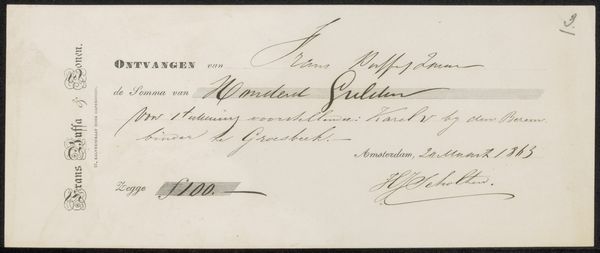 3
Frans Buffa & Zonen.
ONTVANGEN van Frans Buffa & Zonen
de Somma van Honderd Gulden
voor 1 tekening voorstellende: Karel V by den Bezem-
binder te Groesbeek.-
Amsterdam, 20 Maart 1863
Zegge f100.-
H J Scholten.